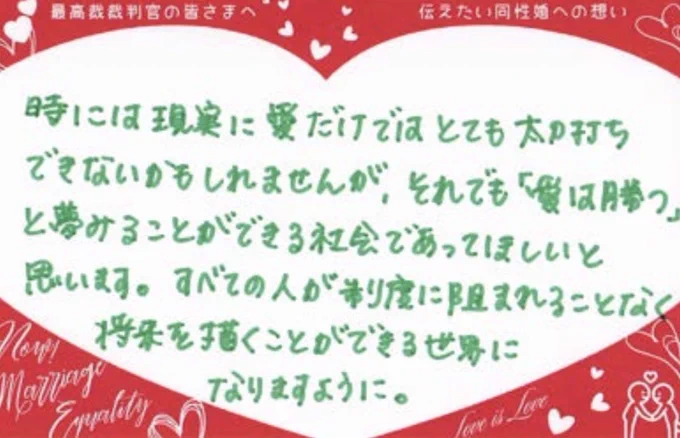 最高裁裁判官の皆さまへ
伝えたい同性婚への想い
時には現実に愛だけではとても太刀打ち
できないかもしれませんが、それでも「愛は勝つ」
と夢みることができる社会であってほしいと
思います。すべての人が制度に阻まれることなく
将来を描くことができる世界に
なりますように。
Now!
Marriage
Equality
Love is Love